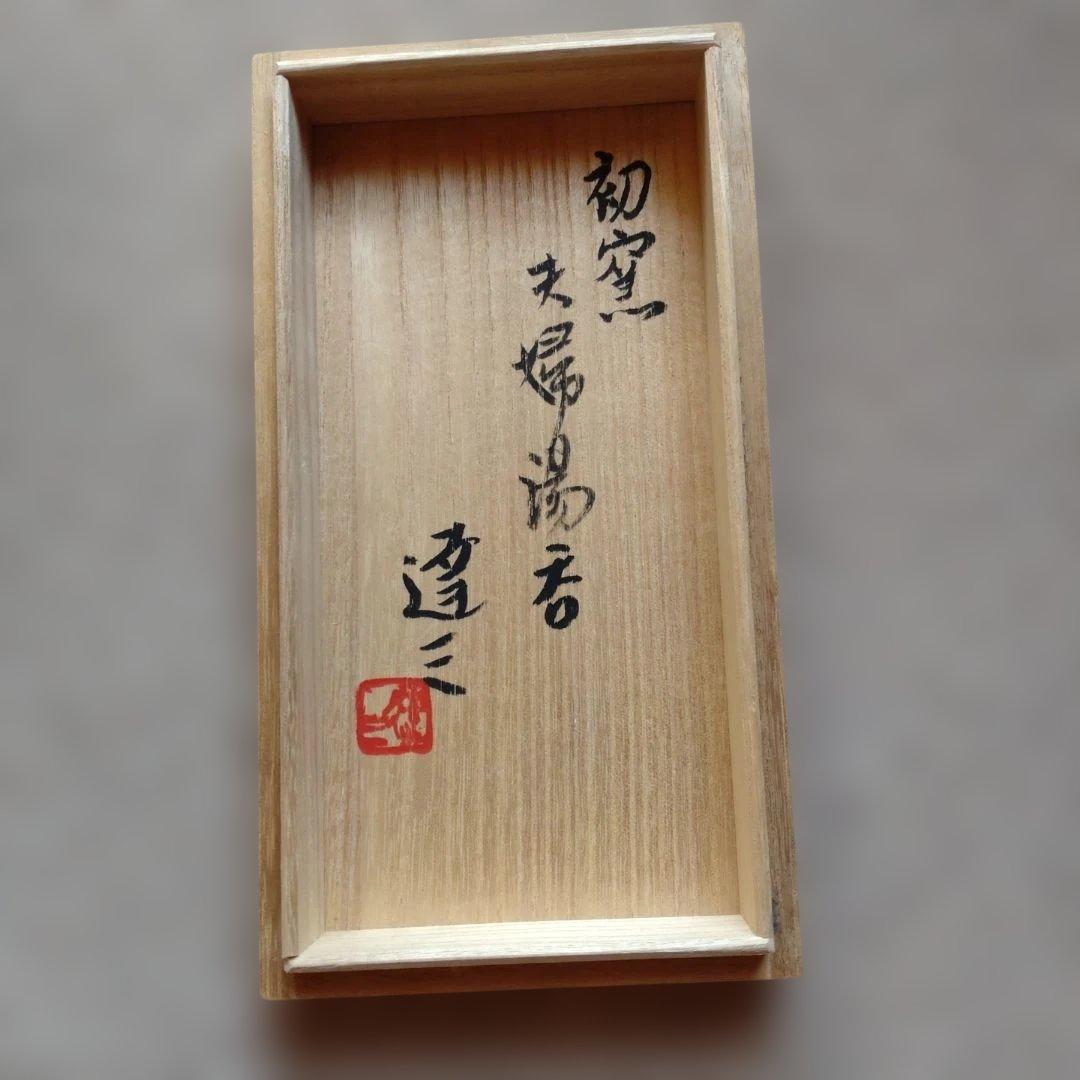 初窯
夫婦湯呑
達三